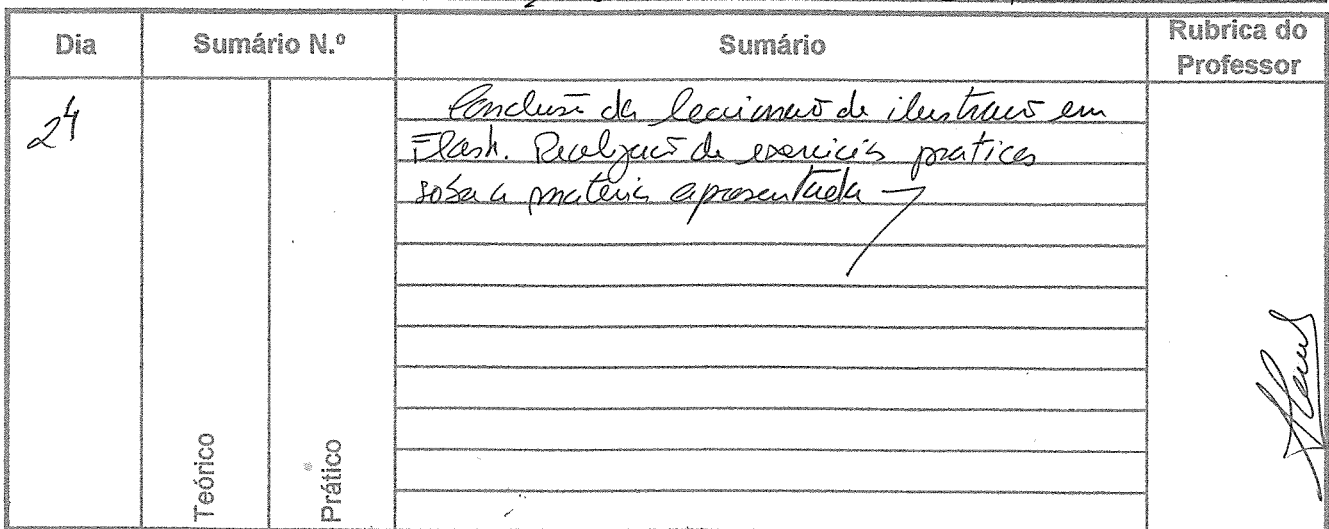 Dia Sumário N.º Sumário Rubrica do Professor
24
Conclusão da leccionação de ilustração em
Flash. Realização de exercícios praticos
sobre a matéria apresentada
Teórico Prático